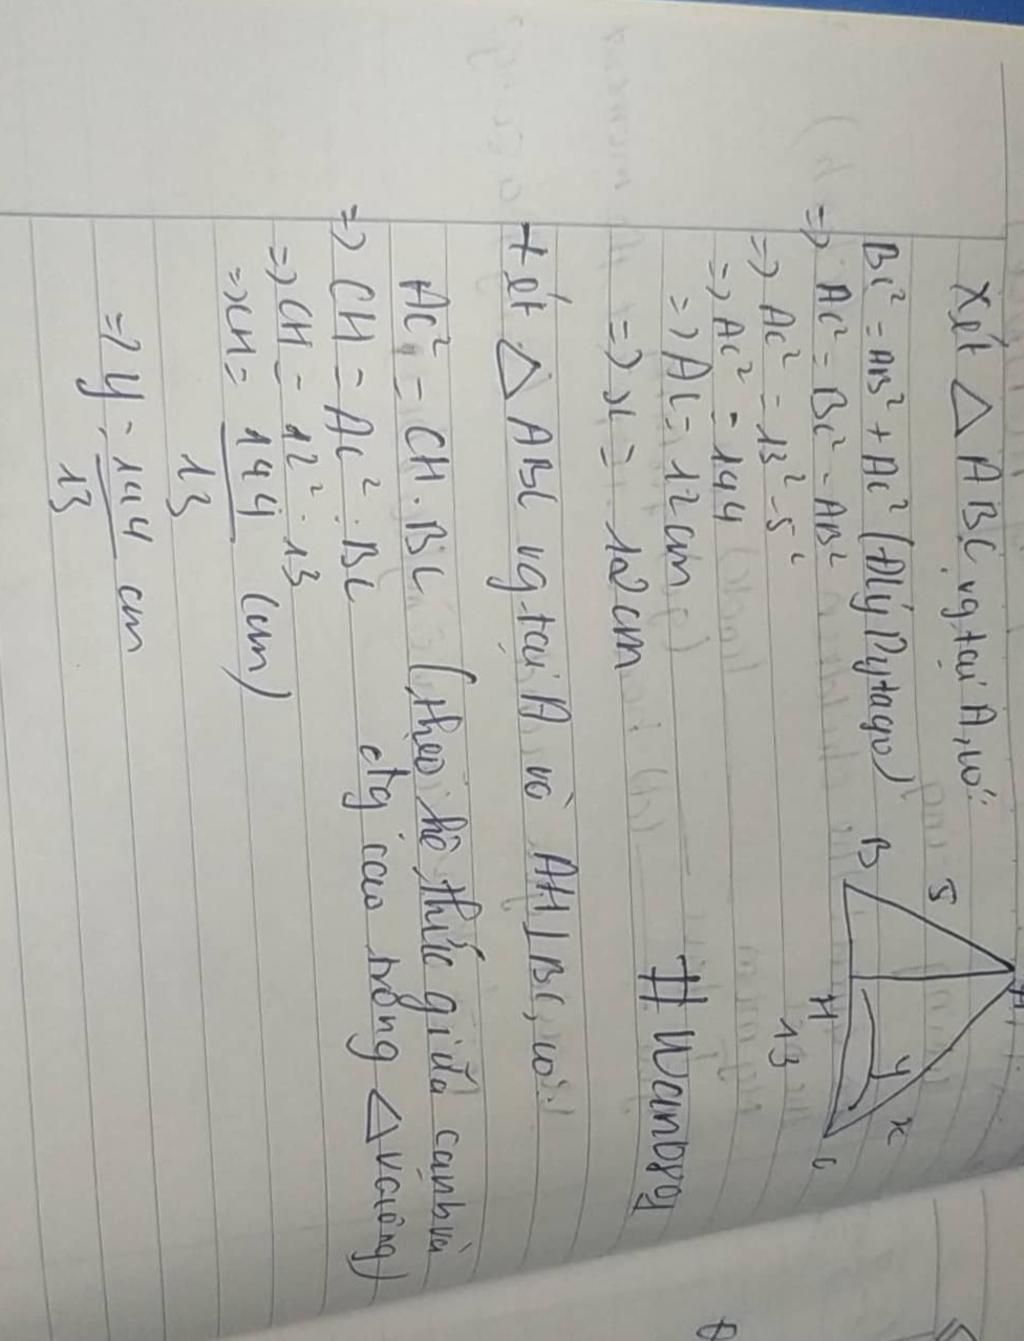 Xét △ ABC vg tại A, có:
BC² = AB² + AC² (Đlý Pytago)
=> AC² = BC² - AB²
=> AC² = 13² - 5²
=> AC² = 144
=> AC = 12cm
=> x = 12cm
#Wanbgg
+ ét △ ABC vg tại A và AH⊥BC, có:
AC² = CH . BC (theo hệ thức giữa cạnh và
đg cao trong △ vuông)
=> CH = AC² : BC
=> CH = 12² : 13
=> CH = 144/13 (cm)
=> y = 144/13 cm
A
5
B
H
y
x
13
C